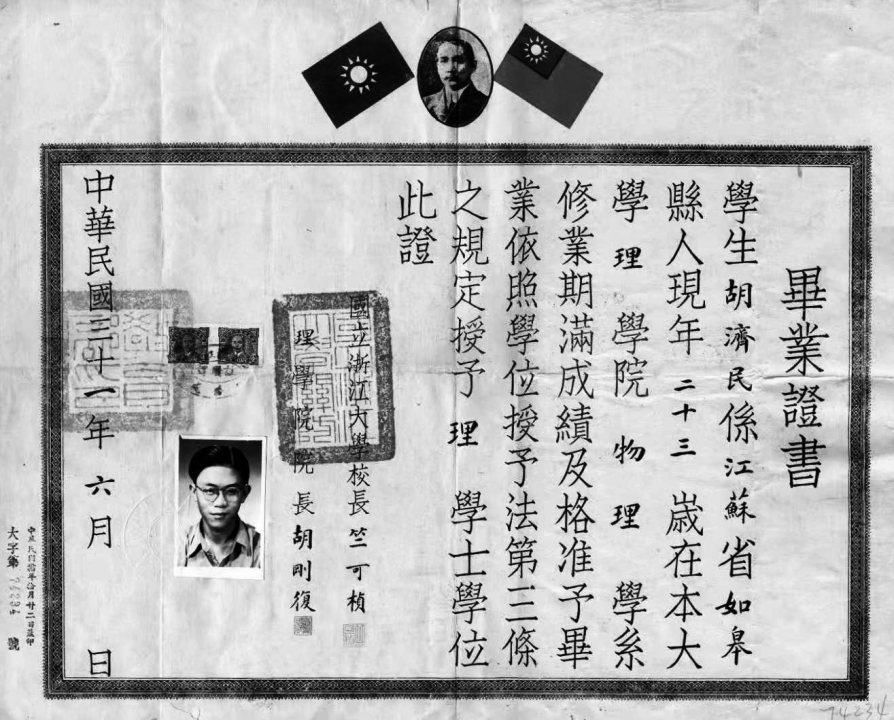 畢業證書
學生胡濟民係江蘇省如皋
縣人現年二十三歲在本大
學理學院物理學系
修業期滿成績及格准予畢
業依照學位授予法第三條
之規定授予理學士學位
此證
國立浙江大學校長竺可楨
理學院院長胡剛復
中華民國三十一年六月 日
大字第 號
74234